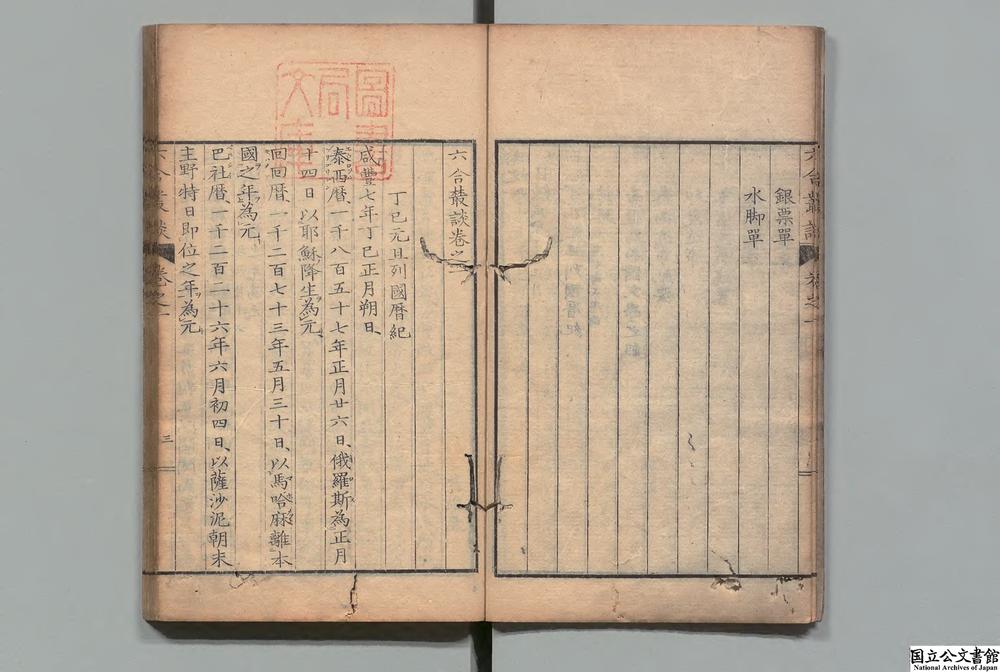 銀票單
水脚單
六合叢談卷之一
丁巳元旦列國曆紀
咸豐七年丁巳正月朔日、
泰西曆、一千八百五十七年正月廿六日、俄羅斯為正月
十四日、以耶穌降生為元、
回回曆、一千二百七十三年五月三十日、以馬哈麻離本
國之年為元
巴社曆、一千二百二十六年六月初四日、以薩沙泥朝末
主野特日即位之年為元
六合叢談
卷之一
三
圖書
局
文庫
国立公文書館
National Archives of Japan